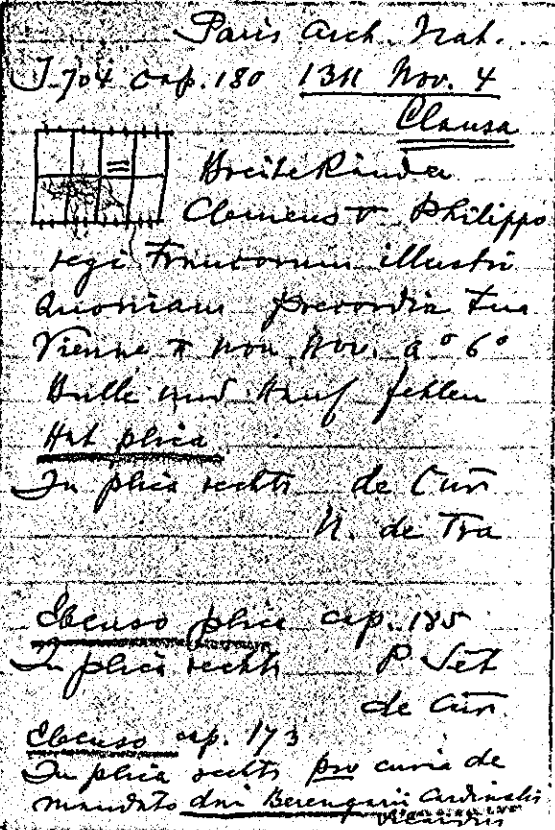 Paris Arch. Nat.
J. 704 cap. 180 1311 Nov. 4
Clausa
Breite Ränder
Clemens V Philippo
regi Francorum illustri
Quoniam precordia tua
Vienne II non Nov. a° 6°
Bulle und Hanf fehlen
Hat plica
In plica rechts de Cur
N. de Tra
Ebenso plica cap. 185
In plica rechts P. Set
de Cur
Ebenso cap. 173
In plica rechts pro curia de
mandato dni Berengarii Cardinalis